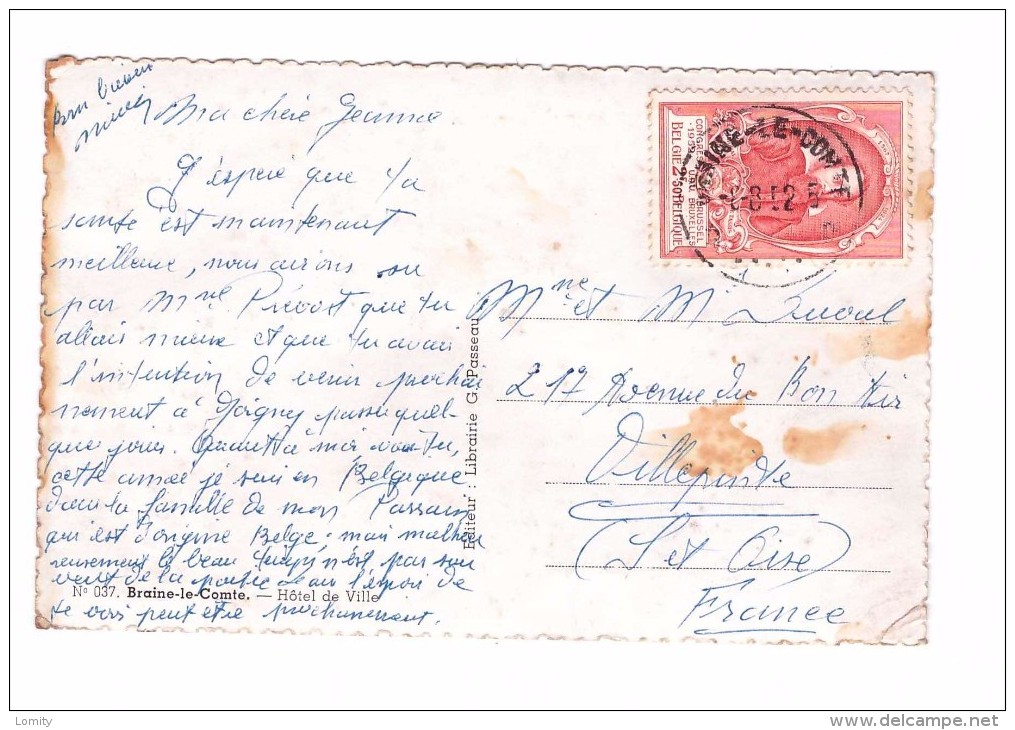 Bon baiser
Ma chère Jeanne
J'espère que ta
santé est maintenant
meilleure, nous avions su
par Mme Prévost que tu
allais mieux et que tu avais
l'intention de venir prochai
nement à Joigny passer quel-
que jours. Quant à moi vois-tu,
cette année je suis en Belgique
dans la famille de mon Parrain
qui est d'origine Belge; mais malheu
reusement le beau temps n'est pas sou
vent de la partie. Dans l'espoir de
te voir peut être prochainement.
Nº 037. Braine-le-Comte. — Hôtel de Ville
Editeur : Librairie G. Passeau
BRAINE-LE-COMTE
BRUSSEL
1952 BRUXELLES
BELGIE 2F50 BELGIQUE
Mme et Mr Duval
217 Avenue du Bon Air
Villepinte
(S et Oise)
France
Lomity
www.delcampe.net